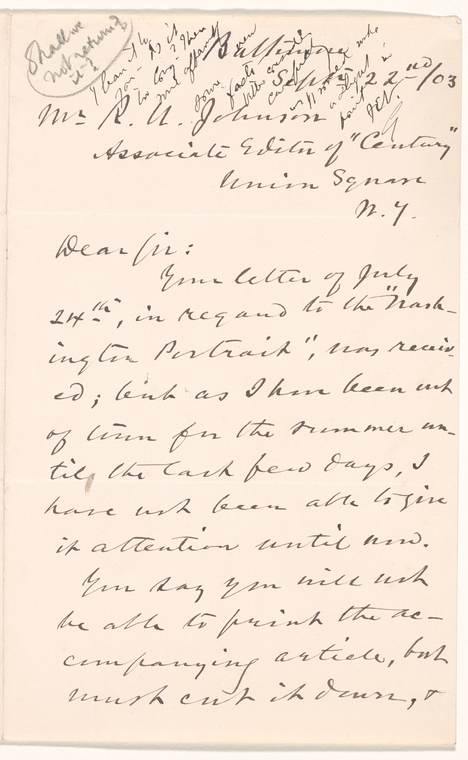 Shall we
not return
it?
Baltimore
Sept 22nd/03
Mr R. U. Johnson
Associate Editor of "Century"
Union Square
N. Y.
Dear Sir:
Your letter of July
24th, in regard to the "Wash-
ington Portrait", was receiv-
ed; but as I have been out
of town for the summer un-
til the last few days, I
have not been able to give
it attention until now.
You say you will not
be able to print the ac-
companying article, but
must cut it down, &